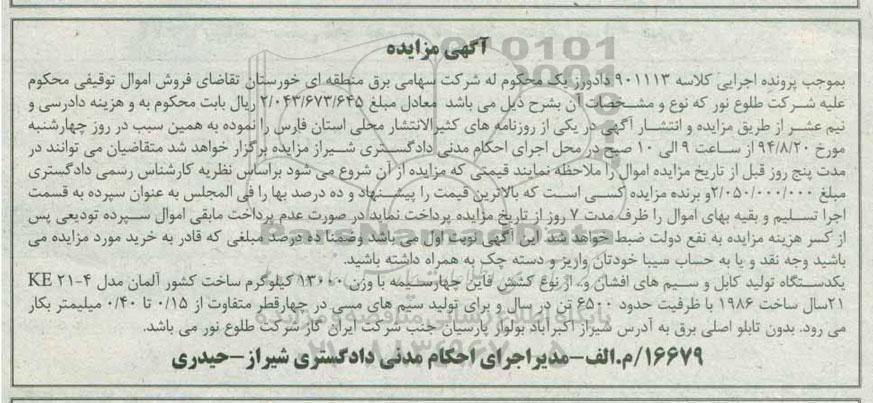 آگهی مزایده
بموجب پرونده اجرایی کلاسه ۹۰۱۱۱۳ دادورز یک محکوم له شرکت سهامی برق منطقه ای خورستان تقاضای فروش اموال توقیفی محکوم
علیه شرکت طلوع نور که نوع و مشخصات آن بشرح ذیل می باشد معادل مبلغ ۲/۰۴۳/۶۷۳/۶۴۵ ریال بابت محکوم به و هزینه دادرسی و
نیم عشر از طریق مزایده و انتشار آگهی در یکی از روزنامه های کثیرالانتشار محلی استان فارس را نموده به همین سبب در روز چهارشنبه
مورخ ۹۴/۸/۲۰ از ساعت ۹ الی ۱۰ صبح در محل اجرای احکام مدنی دادگستری شیراز مزایده برگزار خواهد شد متقاضیان می توانند در
مدت پنج روز قبل از تاریخ مزایده اموال را ملاحظه نمایند قیمتی که مزایده از آن شروع می شود براساس نظریه کارشناس رسمی دادگستری
مبلغ ۲/۰۵۰/۰۰۰/۰۰۰و برنده مزایده کسی است که بالاترین قیمت را پیشنهاد و ده درصد بها را فی المجلس به عنوان سپرده به قسمت
اجرا تسلیم و بقیه بهای اموال را ظرف مدت ۷ روز از تاریخ مزایده پرداخت نماید در صورت عدم پرداخت مابقی اموال سپرده تودیعی پس
از کسر هزینه مزایده به نفع دولت ضبط خواهد شد این آگهی نوبت اول می باشد وضمنا ده درصد مبلغی که قادر به خرید مورد مزایده می
باشید وجه نقد و یا به حساب سیبا خودتان واریز و دسته چک به همراه داشته باشید.
یکدستگاه تولید کابل و سیم های افشان و.. از نوع کشش فاین چهارسیمه با وزن ۱۳۰۰۰ کیلوگرم ساخت کشور آلمان مدل KE ۲۱-۴
۲۱سال ساخت ۱۹۸۶ با ظرفیت حدود ۶۵۰۰ تن در سال و برای تولید سیم های مسی در چهارقطر متفاوت از ۰/۱۵ تا ۰/۴۰ میلیمتر بکار
می رود. بدون تابلو اصلی برق به آدرس شیراز اکبرآباد بولوار پارسیان جنب شرکت ایران گاز شرکت طلوع نور می باشد.
۱۶۶۷۹/م.الف-مدیراجرای احکام مدنی دادگستری شیراز-حیدری
ParsNamadData